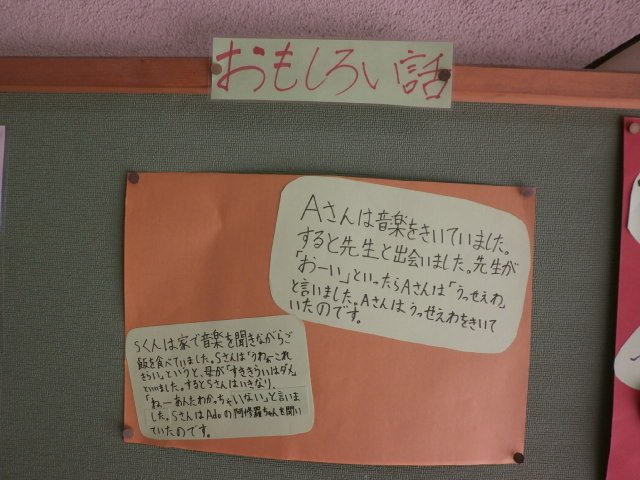 おもしろい話
Aさんは音楽をきいていました。
すると先生と出会いました。先生が
「おーい」といったらAさんは「うっせえわ」
と言いました。Aさんはうっせえわをきいて
いたのです。
Sくんは家で音楽を聞きながらご
飯を食べていました。Sさんは「うわぁこれ
きらい」というと、母が「すききらいはダメ」
といいました。するとSさんはいきなり、
「ねぇーあんたわかっちゃいない」と言いま
した。SさんはAdoの阿修羅ちゃんを聞い
ていたのです。